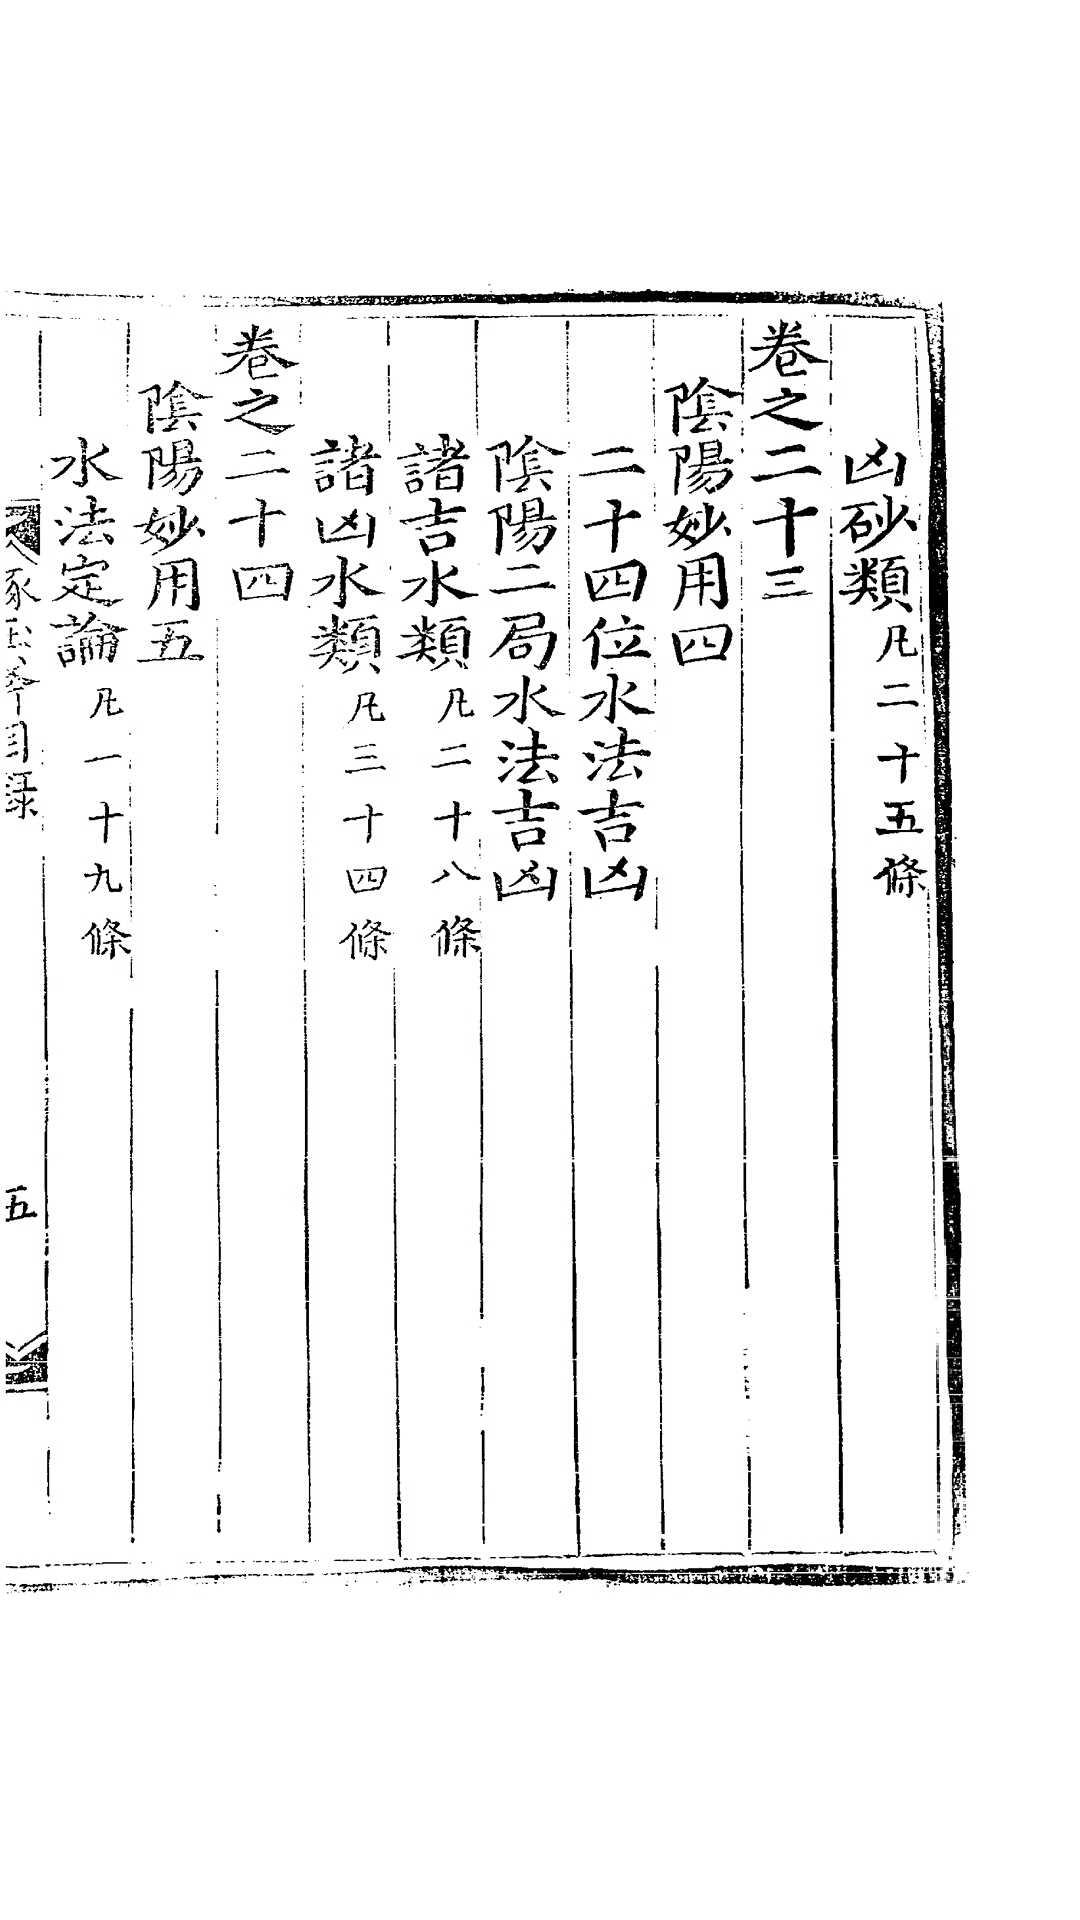 凶砂類凡二十五條
卷之二十三
陰陽妙用四
二十四位水法吉凶
陰陽二局水法吉凶
諸吉水類凡二十八條
諸凶水類凡三十四條
卷之二十四
陰陽妙用五
水法定論凡一十九條
目錄
五